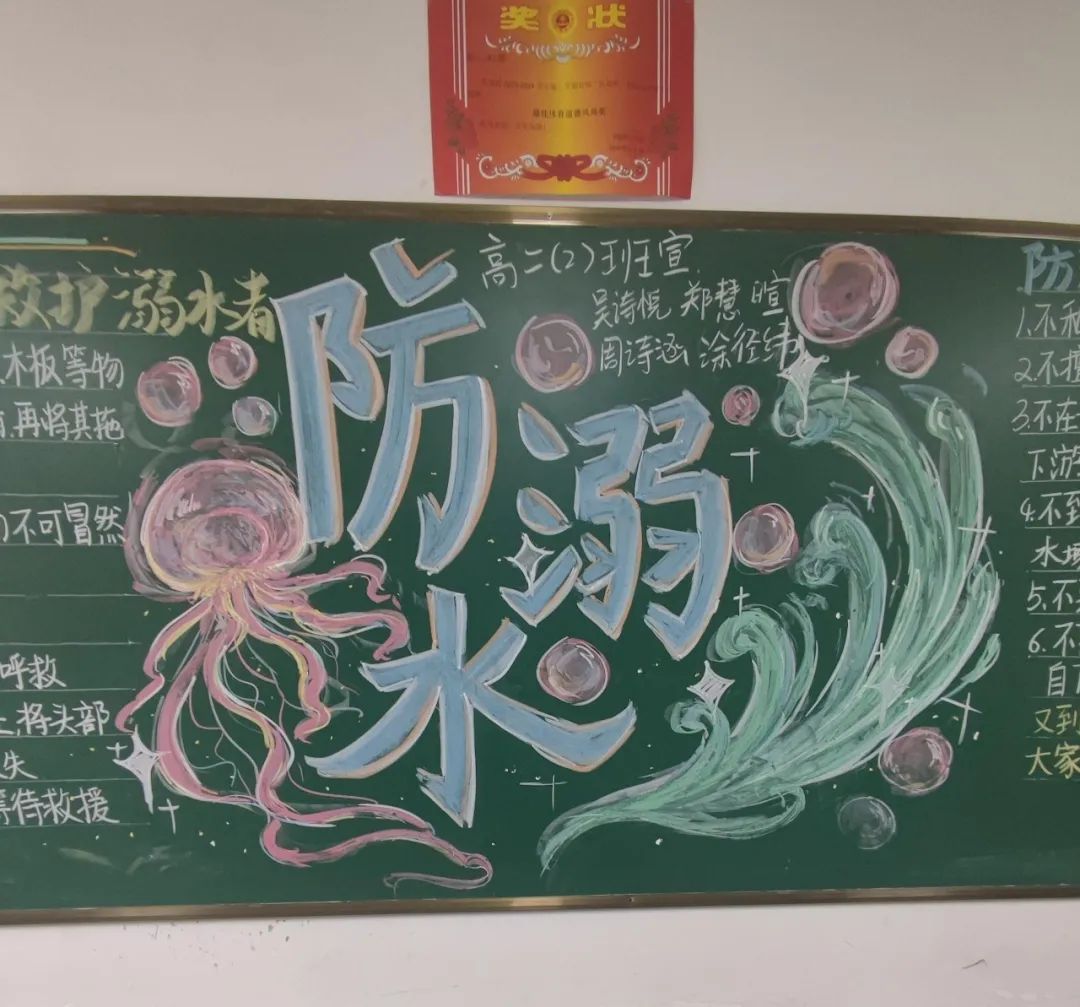 奖状
最佳体育道德风尚奖
救护溺水者
木板等物
再将其拖
不可冒然
呼救
上,将头部
失
等待救援
防溺水
高二(2)班宣
吴诗悦 郑慧暄
周诗涵 涂径纬
防
1.不私
2.不擅
3.不在
下游
4.不到
水域
5.不
6.不
自
又到
大家